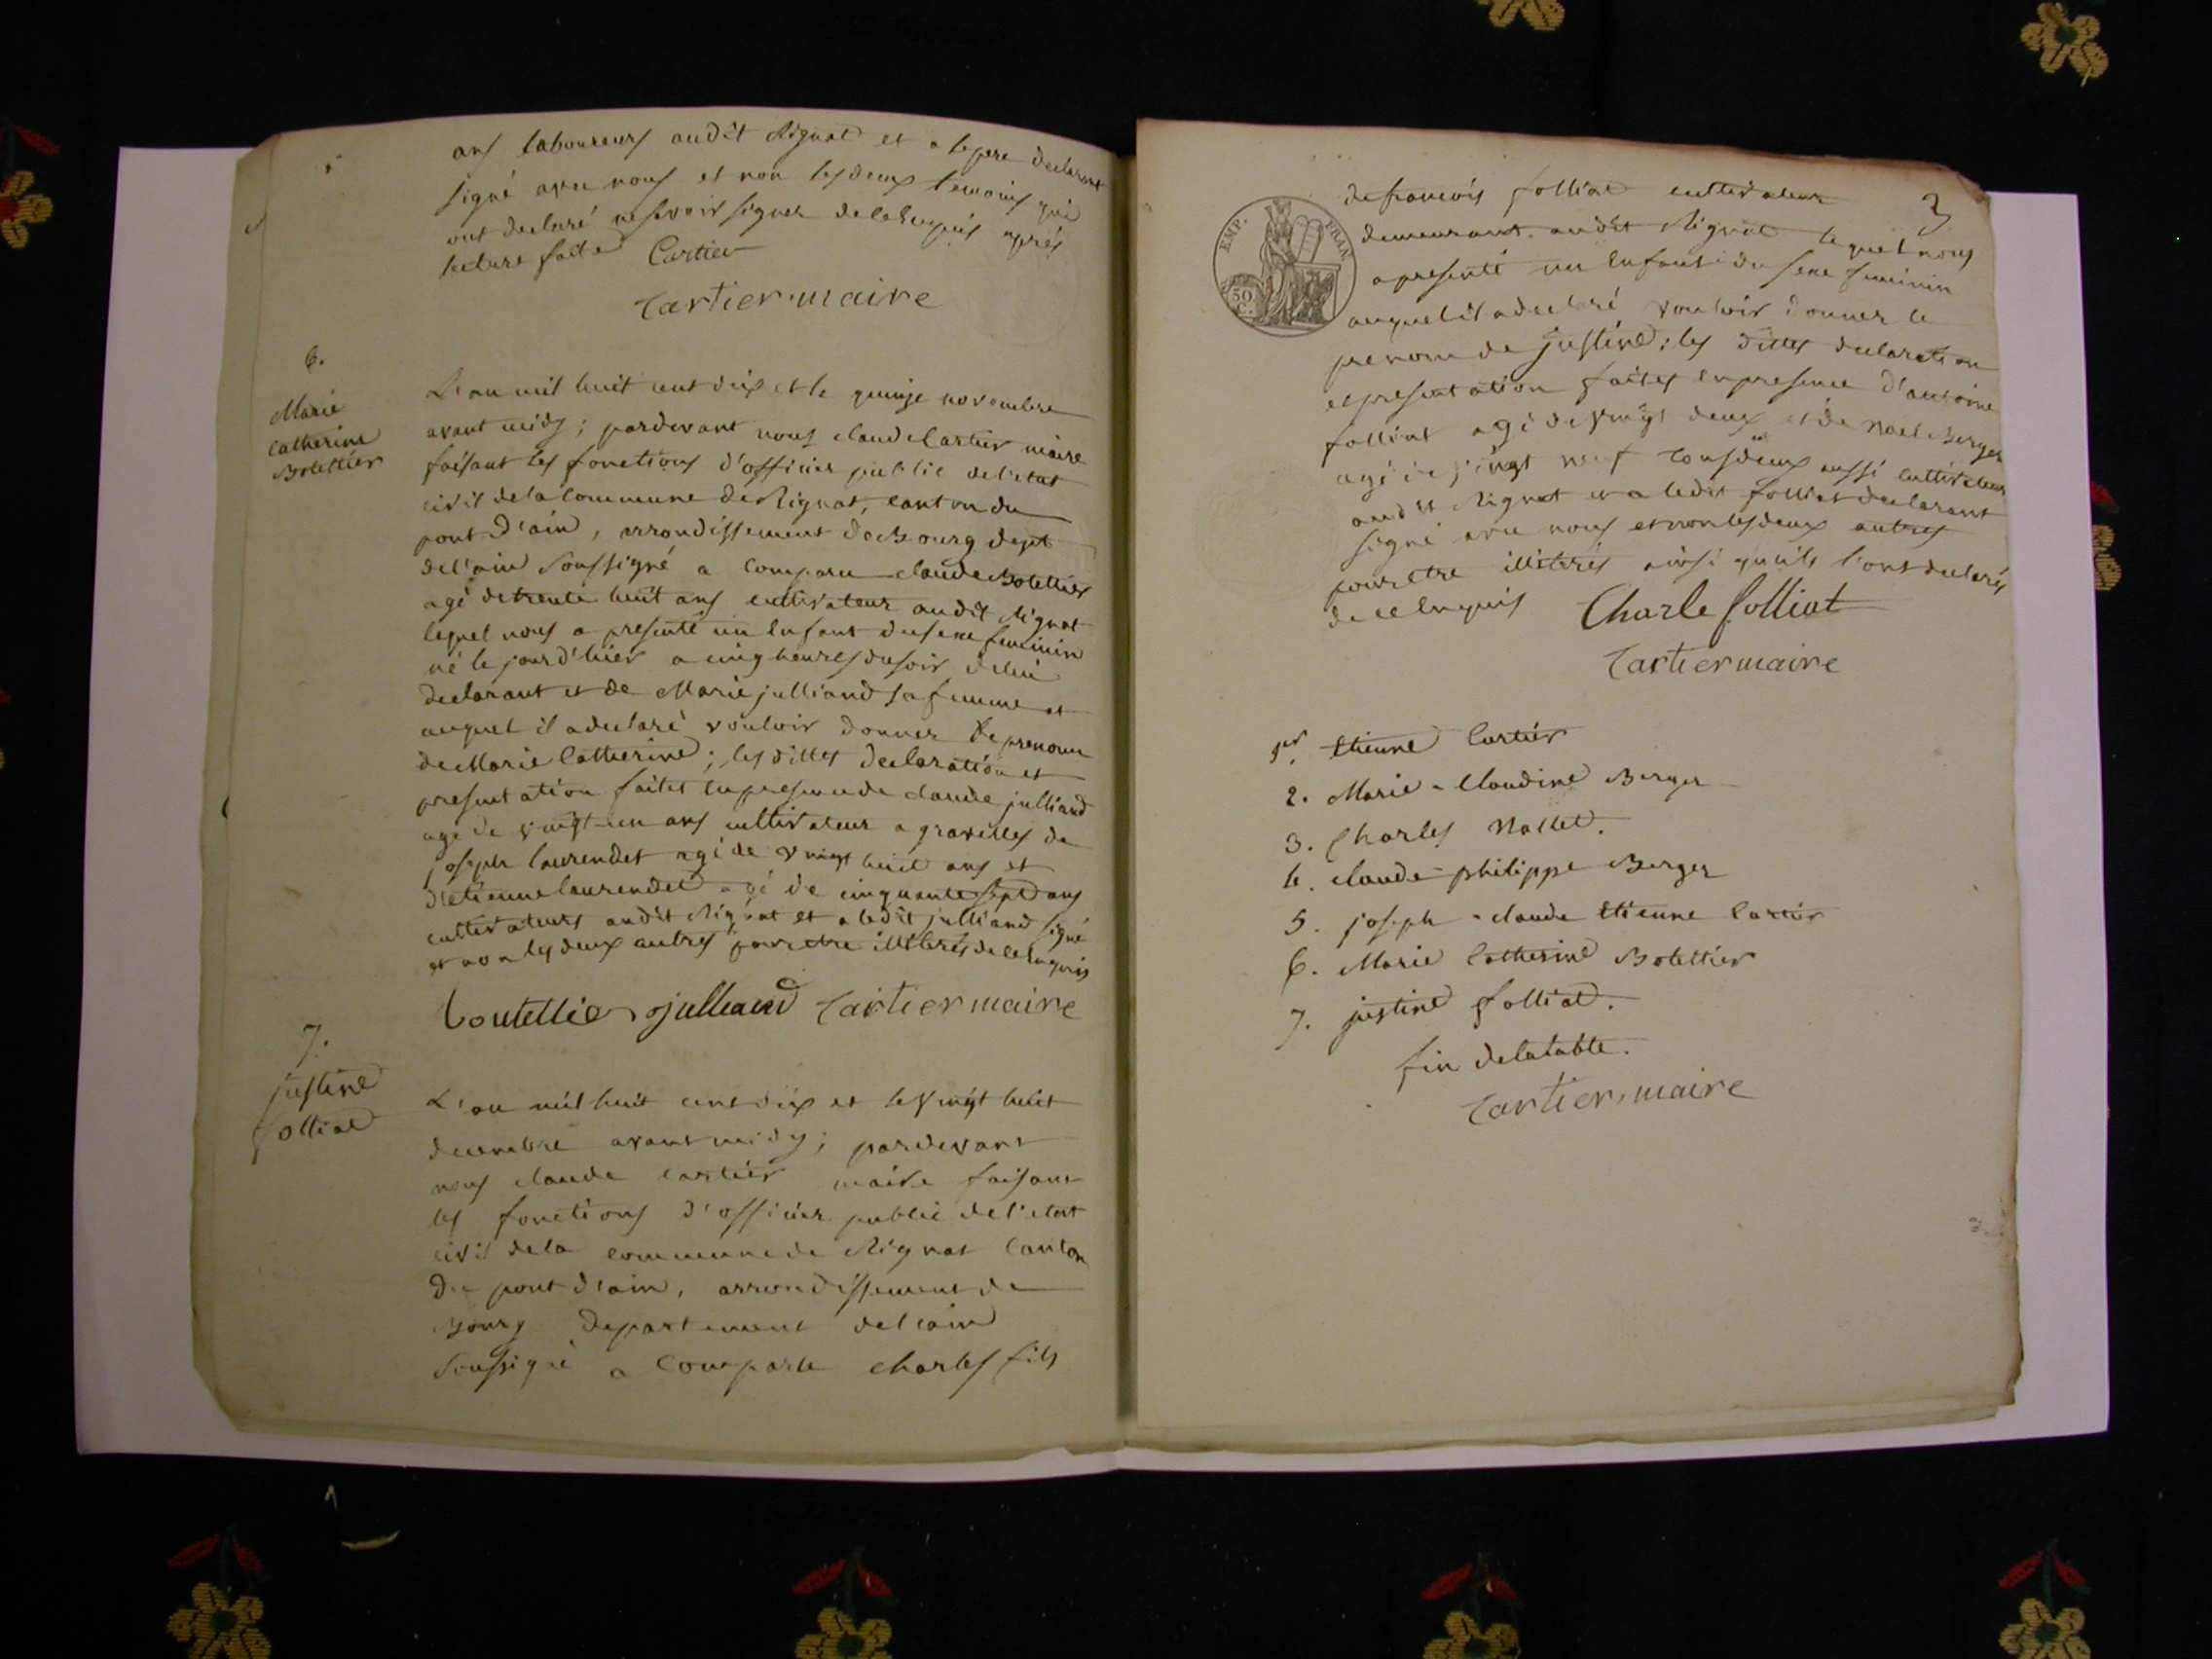 ans laboureurs audit Rignat et a le pere declarant
signé avec nous et non les deux temoins qui
ont declaré ne savoir signer de ce enquis après
lecture faite Cartier
Cartier maire
6.
Marie
Catherine
Botettier
L'an mil huit cent dix et le quinze novembre
avant midy; pardevant nous claude Cartier maire
faisant les fonctions d'officier public de l'etat
civil de la Commune de Rignat, canton du
pont d'ain, arrondissement de Bourg dept
de l'ain soussigné a comparu claude Botettier
agé de trente huit ans cultivateur audit Rignat
lequel nous a presenté un Enfant du sexe feminin
né le jour d'hier a cinq heures du soir de lui
declarant et de Marie julliand sa femme et
auquel il a declaré vouloir donner le prenom
de Marie Catherine; les dittes declaration et
presentation faites en presence de claude julliand
agé de vingt-un ans cultivateur a gravelles de
joseph laurendet agé de vingt huit ans et
d'etienne laurendet agé de cinquante sept ans
cultivateurs audit Rignat et a ledit julliand signé
et non les deux autres pour etre illiterés de ce enquis
boutellier julliand Cartier maire
7.
justine
folliat
L'an mil huit cent dix et le vingt huit
decembre avant midy; pardevant
nous claude cartier maire faisant
les fonctions d'officier public de l'etat
civil de la commune de Rignat Canton
du pont d'ain, arrondissement de
Bourg departement de l'ain
soussigné a comparu charles fils
3
EMP. FRAN
50
C.
de francois folliat cultivateur
demeurant audit Rignat lequel nous
a presenté un Enfant du sexe feminin
auquel il a declaré vouloir donner le
prenom de justine; les dittes declaration
et presentation faites en presence d'antoine
folliat agé de vingt deux et de noel Berger
agé de vingt neuf tous deux aussi cultivateurs
audit Rignat et a ledit folliat declarant
signé avec nous et non les deux autres
pour etre illiterés ainsi qu'ils l'ont declarés
de ce enquis Charle folliat
Cartier maire
1er. Etienne Cartier
2. Marie-Claudine Berger
3. Charles Nallet.
4. claude-philippe Berger
5. joseph-claude Etienne Cartier
6. Marie Catherine Botettier
7. justine folliat.
fin de la table.
Cartier, maire